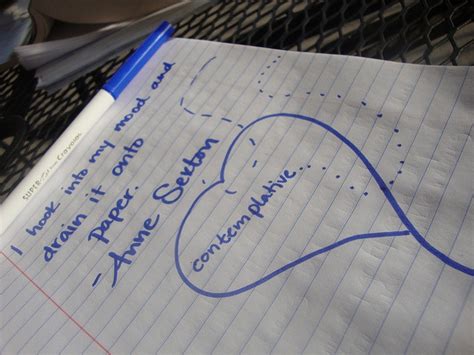 I hook into my mood and
drain it onto
paper.
- Anne Sexton
contemplative...
SUPER Crayola